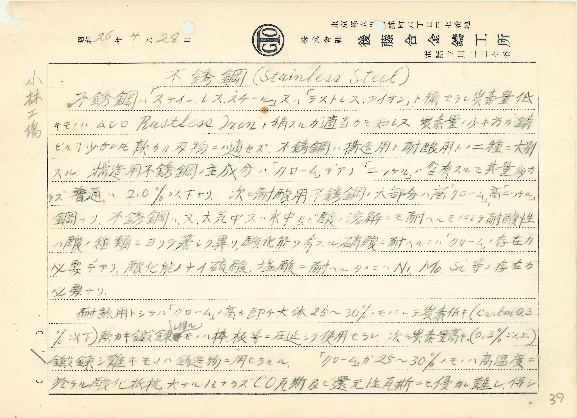 昭和26年4月28日
株式会社 後藤合金鑄工所
小林工場
不銹鋼 (Stainless Steel)
不銹鋼ハ「ステインレススチール」又ハ「ラストレスアイオン」ト稱セラレ炭素量低
キモノハ Rustless Iron ト稱スルガ適当カモ知レヌ 炭素量ノ少キ方ガ錆
不銹鋼ハ構造用ト耐酸用トノ二種ニ大別
スル 構造用不銹鋼ノ主成分ハ「クローム」デアリ「ニッケル」ハ含有スルモ其量多カ
ラズ 普通ハ 2.0%以下ナリ 次ニ耐酸用不銹鋼ノ大部分ハ高「クローム」高「ニッケル」
鋼ナリ、不銹鋼ハ又大気中又ハ水中 酸ノ溶解ニモ耐ヘルモノニシテ耐酸性
ハ酸ノ種類ニヨリテ著シク異リ酸化能ノ有スル硝酸ニ耐ヘルニハ「クローム」ノ存在ガ
必要デアリ、酸化能ノナイ硫酸、塩酸ニ耐ヘルタメニハ Ni, Mo, Si 等ノ存在ガ
必要ナリ、
耐熱用トシテハ「クローム」ノ高キ即チ大体25〜30%ノモノニシテ炭素低キ (Carbon 0.3
%以下) 鍛錬シ得ルモノハ棒、板等ニ圧延シテ使用セラレ 次ニ炭素量高キ (0.3%以上)
鍛錬シ難キモノハ鋳造物ニ用ヒラル、 「クローム」ガ25〜30%ノモノハ高温度ニ
於ケル酸化抵抗大ナルノミナラズCO瓦斯及ビ還元性瓦斯ニモ侵カレ難シ、併シ
39